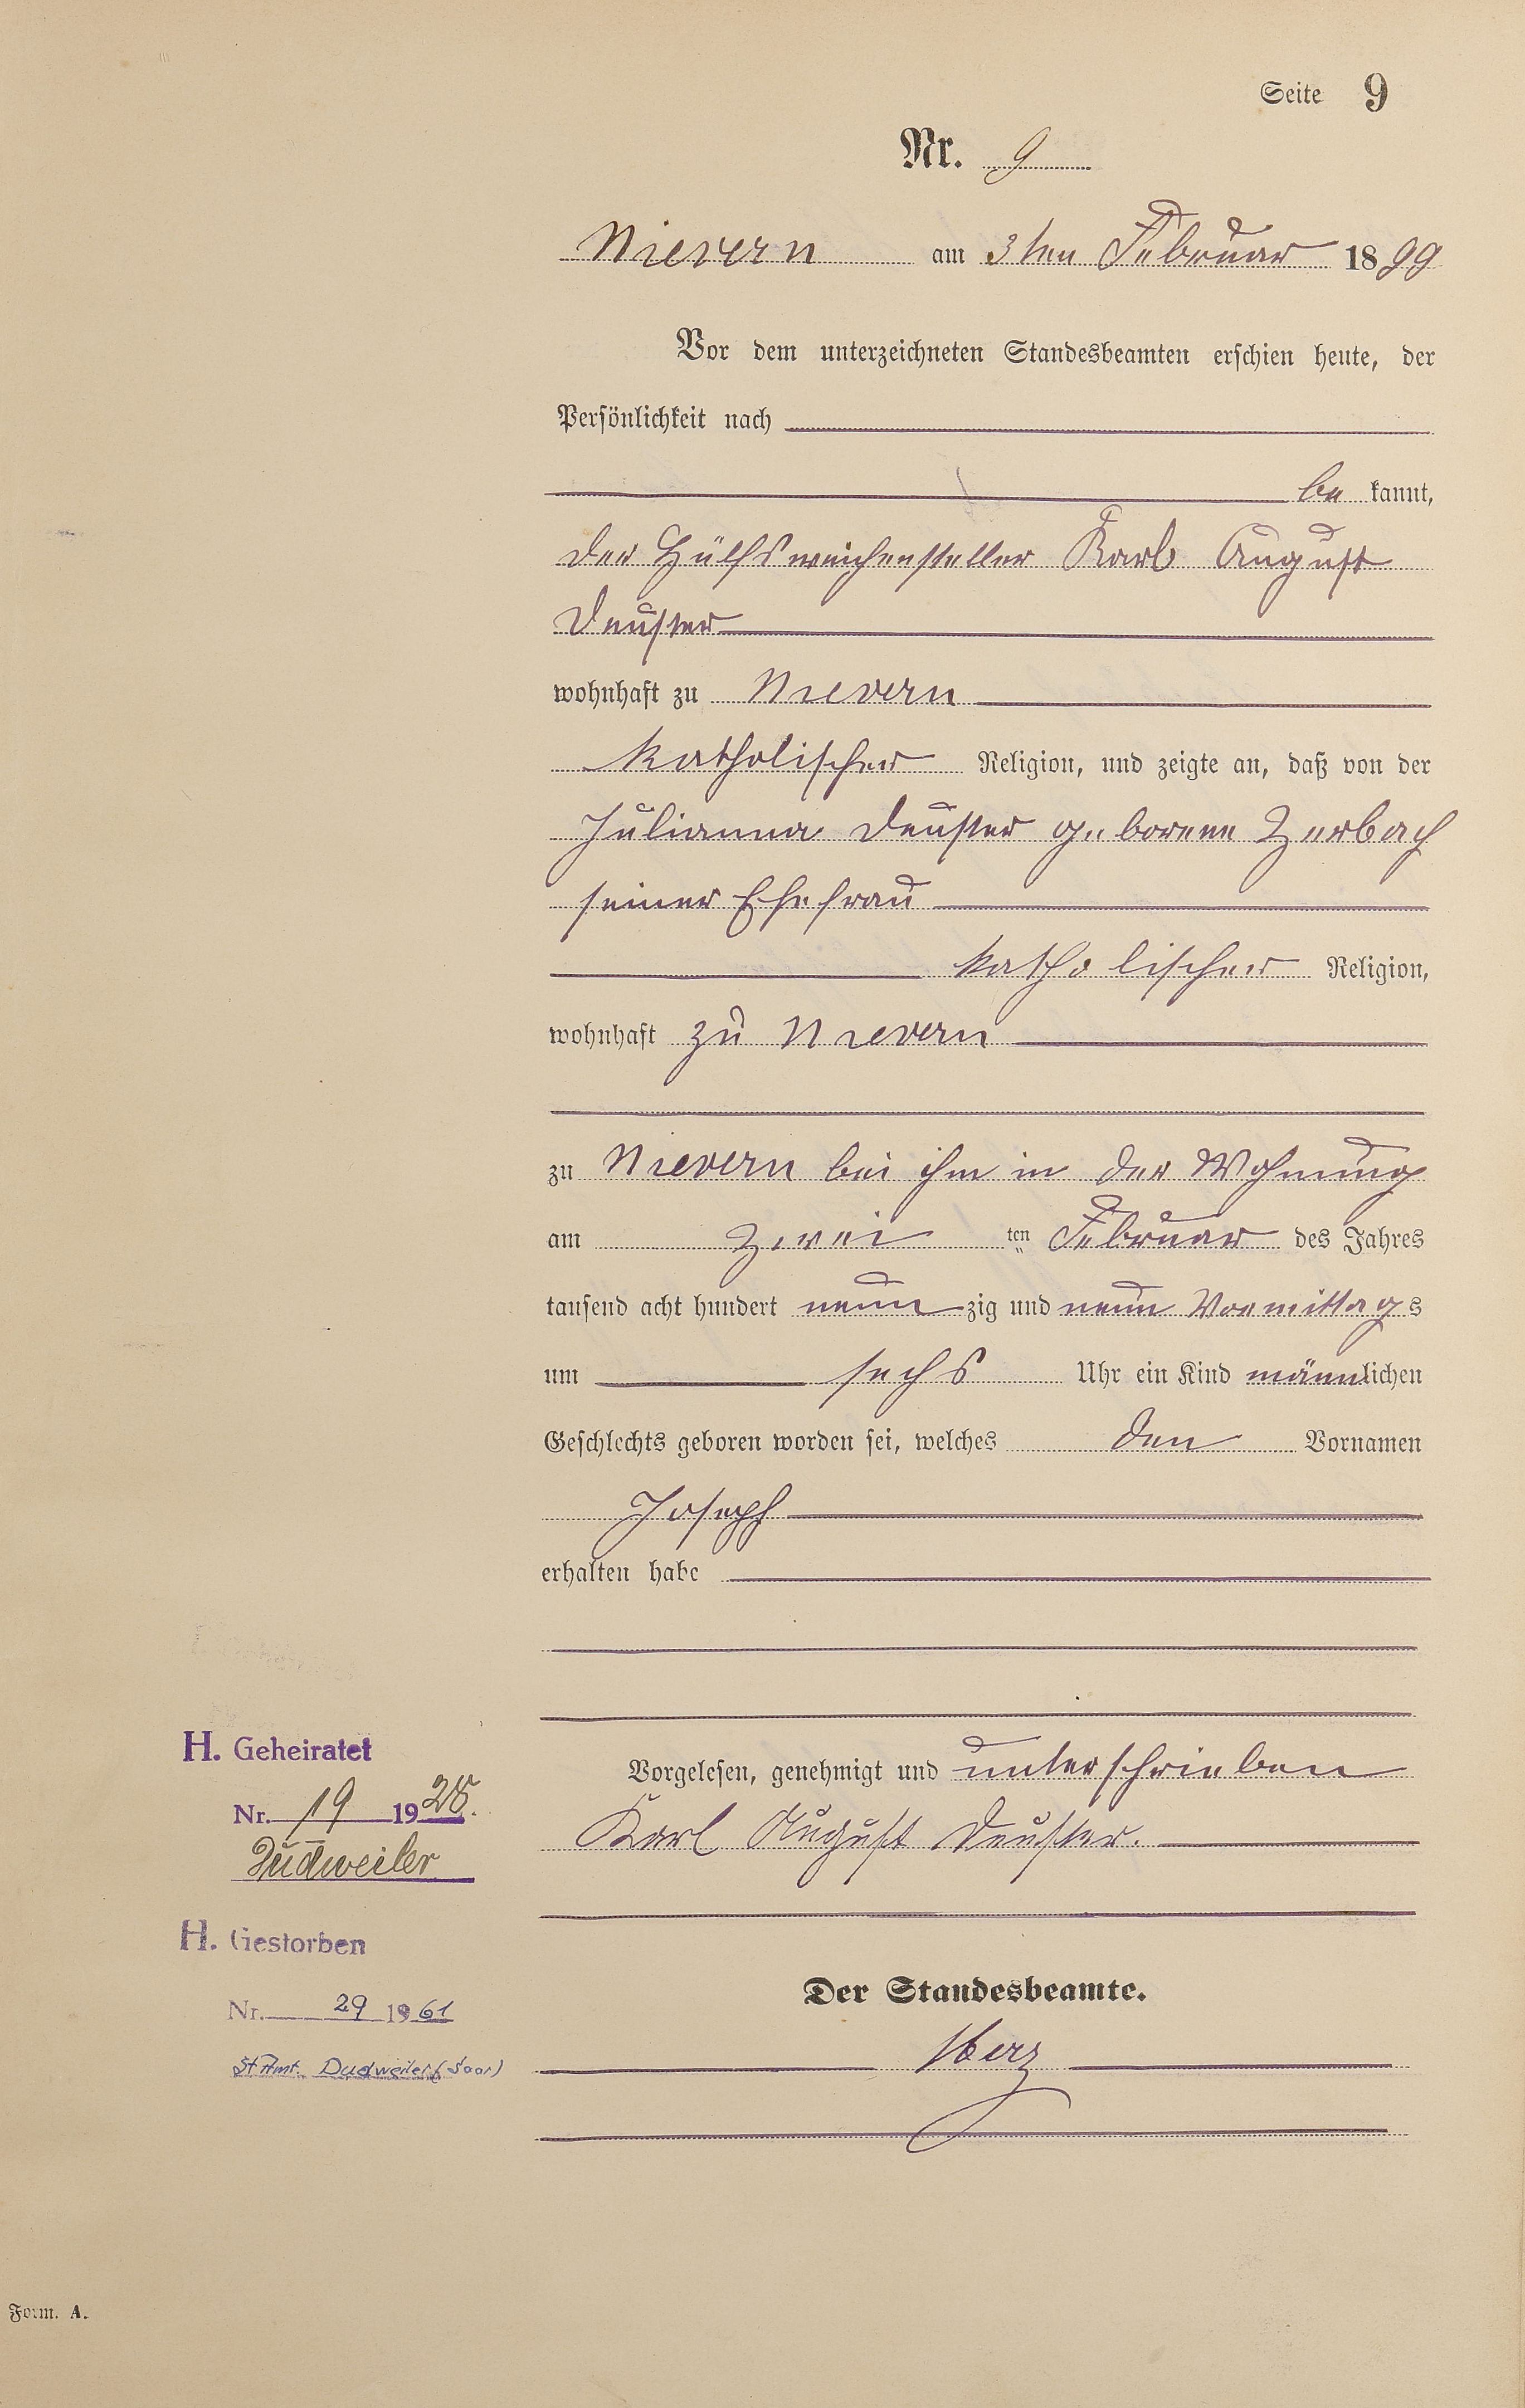 Seite 9
Nr. 9
Nievern am 3ten Februar 1899
Vor dem unterzeichneten Standesbeamten erschien heute, der
Persönlichkeit nach
be kannt,
der Hülfsweichensteller Karl August
Deuster
wohnhaft zu Nievern
katholischer Religion, und zeigte an, daß von der
Julianna Deuster geborene Zerbach
seiner Ehefrau
katholischer Religion,
wohnhaft zu Nievern
zu Nievern bei ihm in der Wohnung
am zwei ten Februar des Jahres
tausend acht hundert neun zig und neun Vormittags
um sechs Uhr ein Kind männlichen
Geschlechts geboren worden sei, welches den Vornamen
Joseph
erhalten habe
Vorgelesen, genehmigt und unterschrieben
Karl August Deuster.
Der Standesbeamte.
H. Geheiratet
Nr. 19 1928.
Dudweiler
H. Gestorben
Nr. 29 1961
St Amt. Dudweiler (Saar)
Form. A.